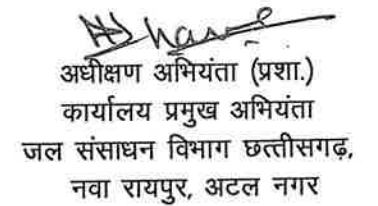 अधीक्षण अभियंता (प्रशा.)
कार्यालय प्रमुख अभियंता
जल संसाधन विभाग छत्तीसगढ़,
नवा रायपुर, अटल नगर